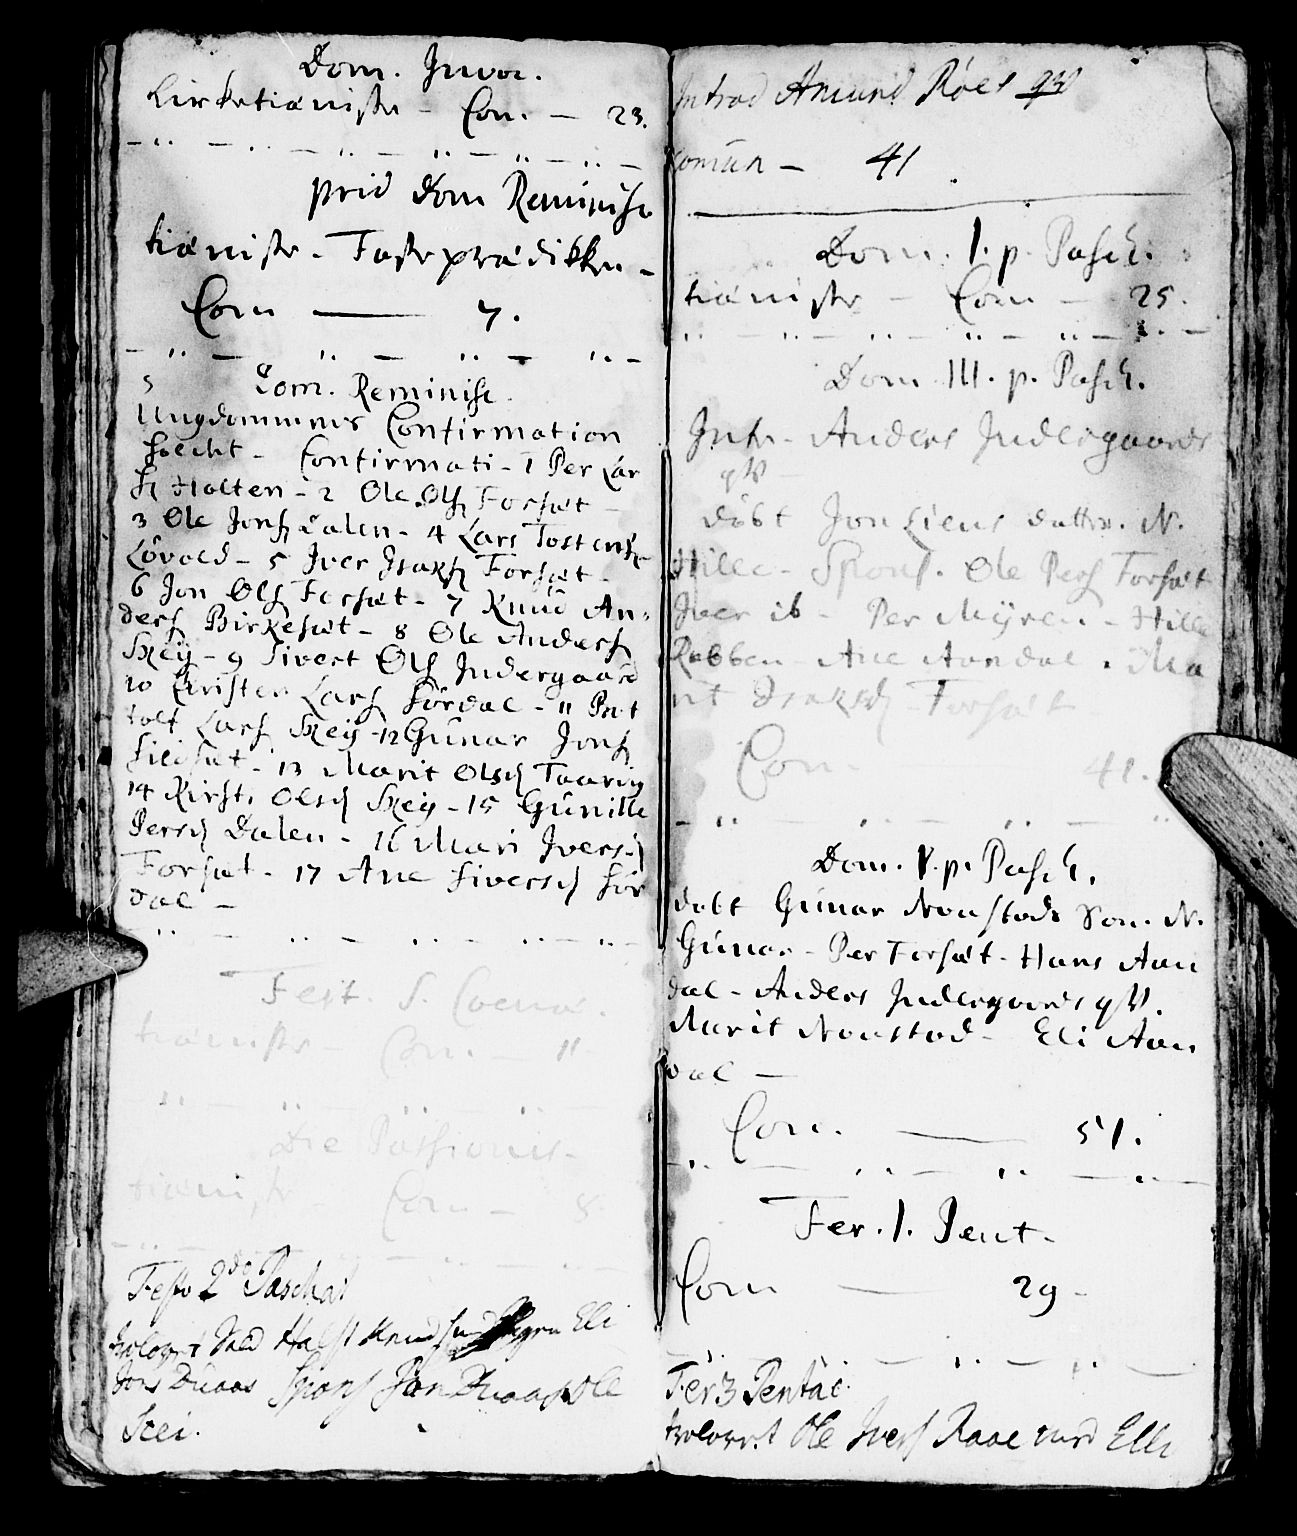 Dom. Invoc.
Kirketieniste - Com. - 23.
prid Dom Reminisc
tieniste - Fasteprædikken -
Com — 7.
Dom. Reminisc.
Ungdommens Confirmation
skecht - Confirmati - 1 Per Lar
ſ Holten - 2 Ole Olſ Forsæt -
3 Ole Jonſ Dalen - 4 Lars Tostensſ
Løvold - 5 Iver Isakſ Forsæt -
6 Jon Olſ Forsæt - 7 Knud An-
dersſ Birkesæt - 8 Ole Andersſ
Skeÿ - 9 Sivert Olſ Indergaard
10 Christen Larſ Sørdal - 11 Bot
tolf Larſ Skeÿ - 12 Gunar Jonſ
Silisæt - 13 Marit Olsd Taarvig
14 Kirsti Olsd Skeÿ - 15 Gunille
Persd Dalen - 16 Mari Iversd
Forsæt - 17 Ane Siversd Sør
dal -
Fest. S. Coenæ.
tieniste - Com. - 11 -
Die Passionis -
tieniste - Com - 8.
Festo 2do Paschat
trolovet Halst Knud Elli
Jons Duaas Spons Jon Duaas Ole
Skei.
Introd Amund Røes qv
Comun - 41
Dom. I. p. Pasch.
tieniste - Com - 25.
Dom III. p. Pasch.
Intr. Anders Indergaards
qV -
døbt Jon Liens datter. N.
Hille - Spons. Ole Persſ Forsæt
Iver ib - Per Mÿren - Hille
Rabben - Ane Aandal. Ma
rit Isaksd Forsæt
Com - 41.
Dom. V. p. Pasch.
døbt Gunar Nonstads Søn. N.
Gunar - Per Forsæt - Hans Aan
dal - Anders Indergaards qV.
Marit Nonstad - Eli Aan
dal —
Com. — 51.
Fer. 1. Pent.
Com — 29 -
Fer 3 Pentac.
trolovet Ole Iversſ Raae med Elli